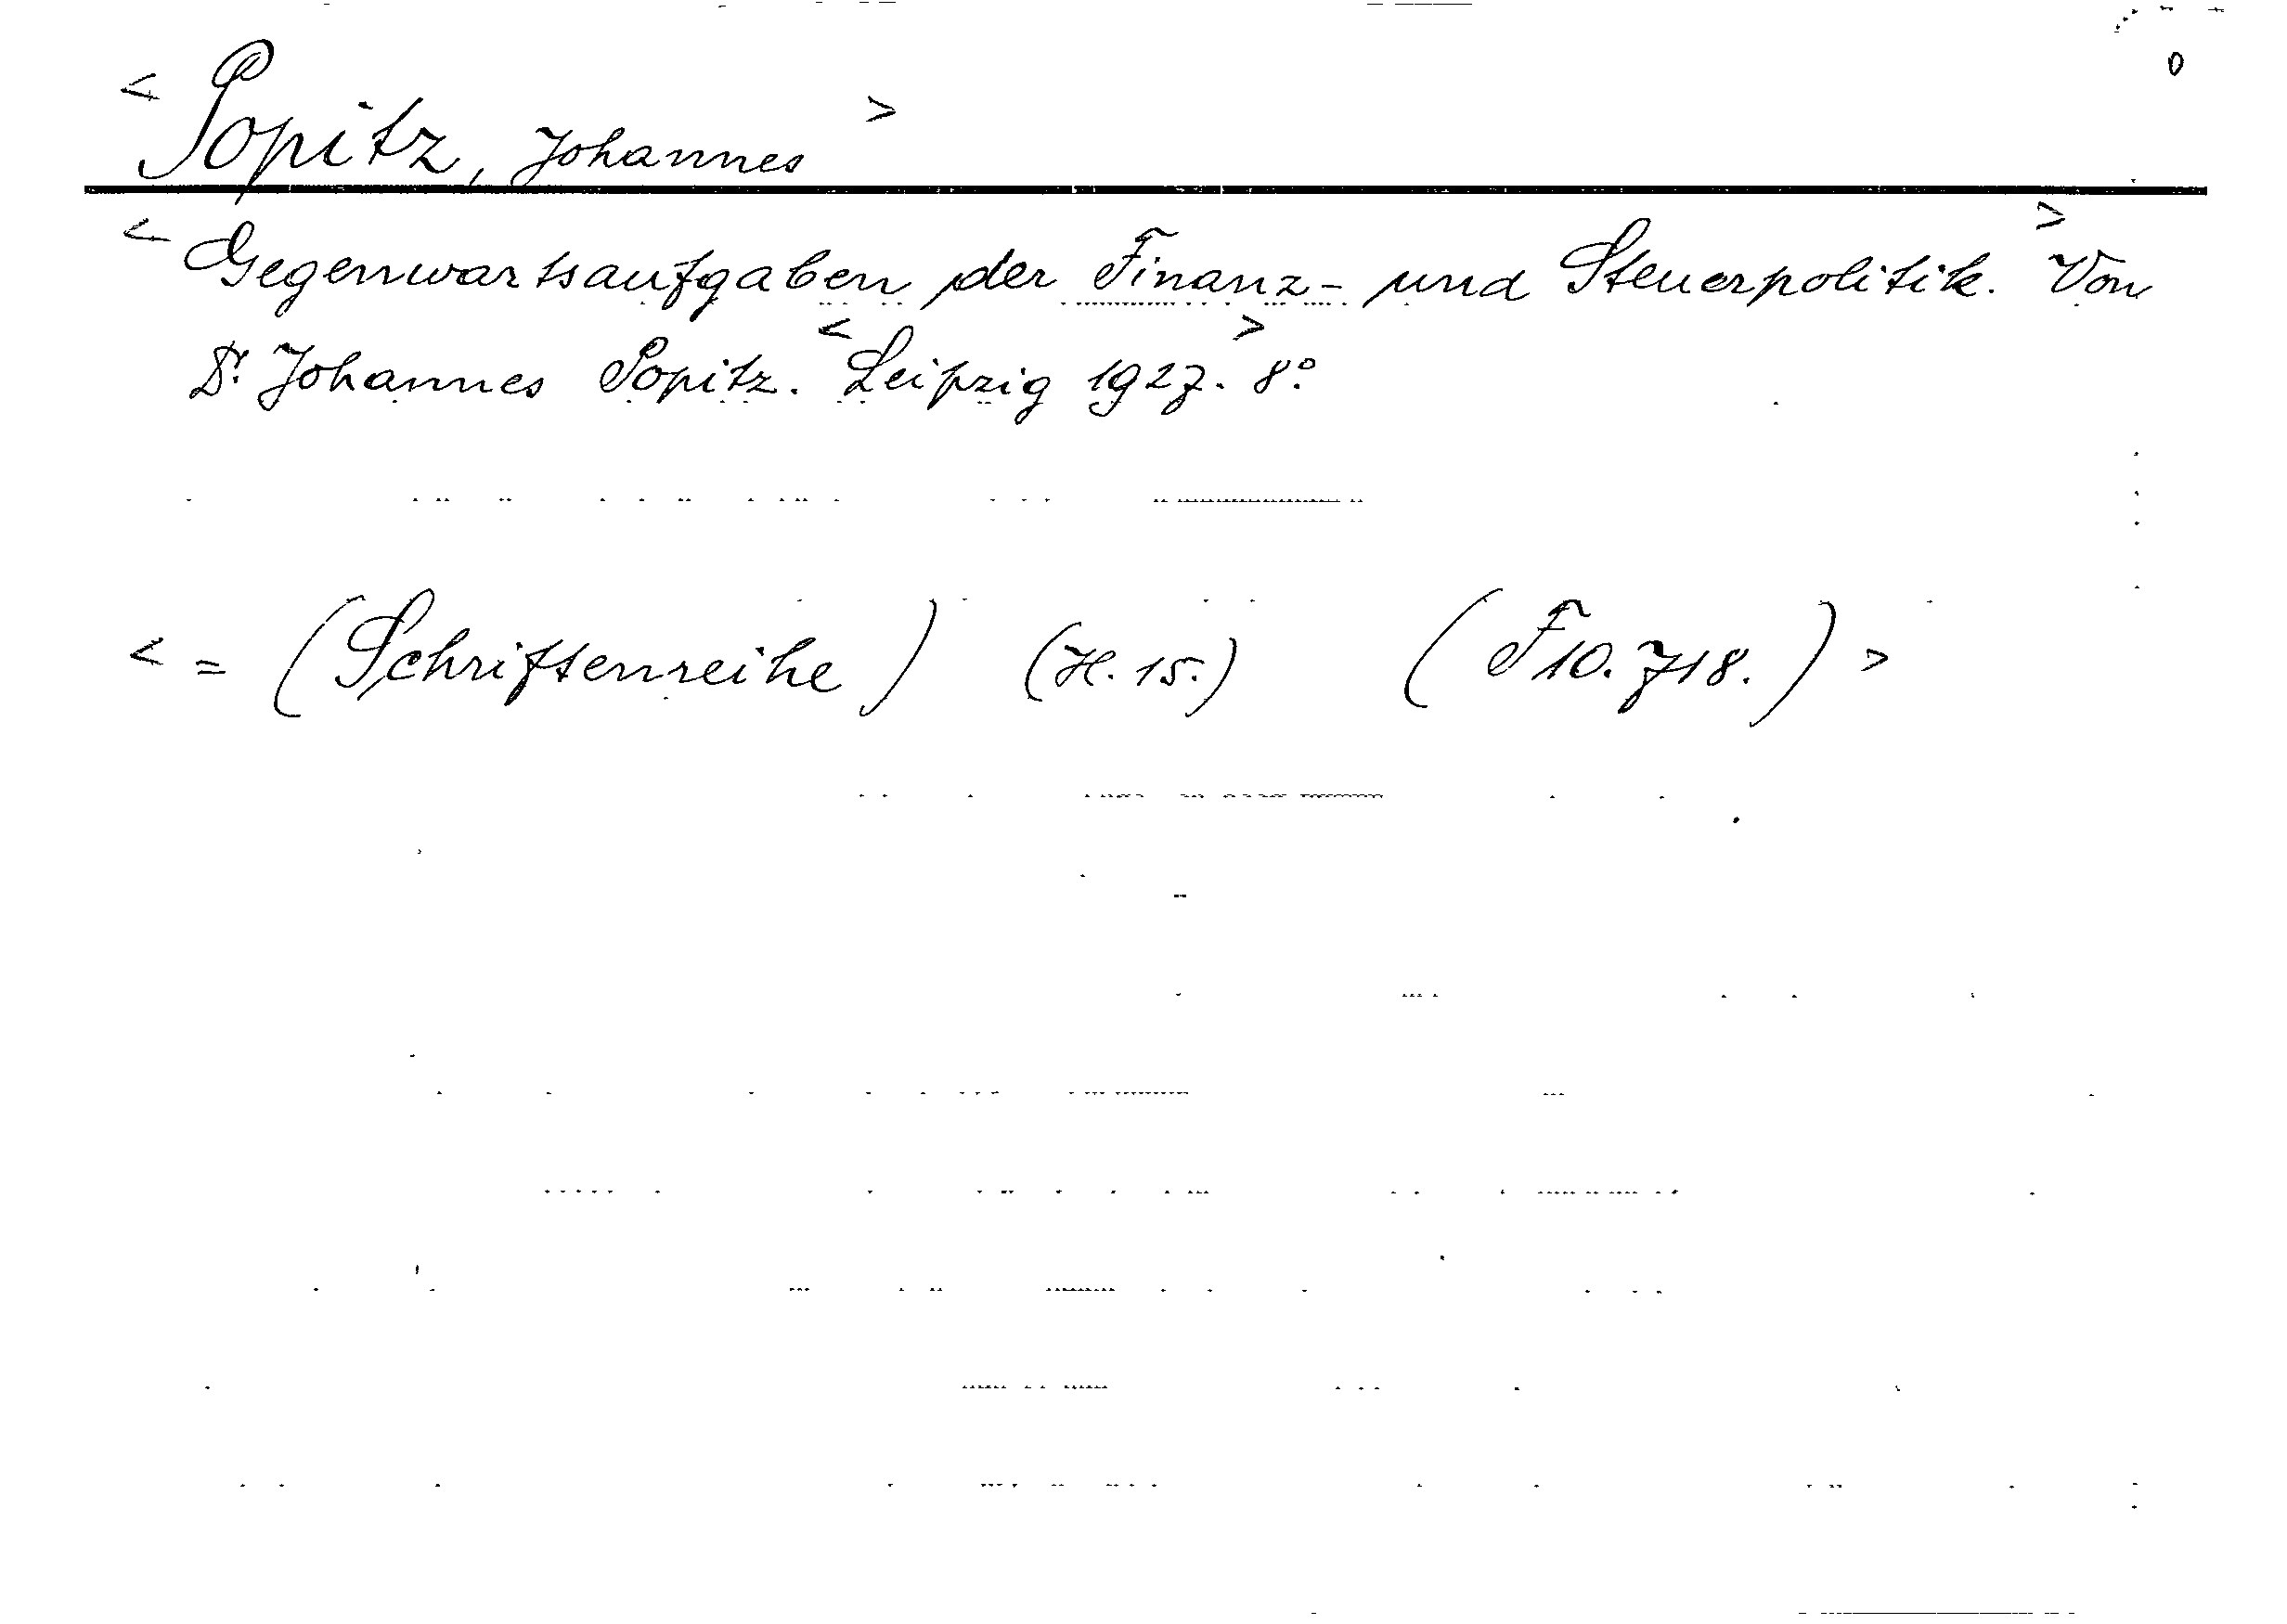 0
< Popitz, Johannes >
< Gegenwartsaufgaben der Finanz- und Steuerpolitik. > Von
Dr. Johannes Popitz. < Leipzig 1927. > 8°.
< = (Schriftenreihe) (H. 15.) (F 10. 718.) >